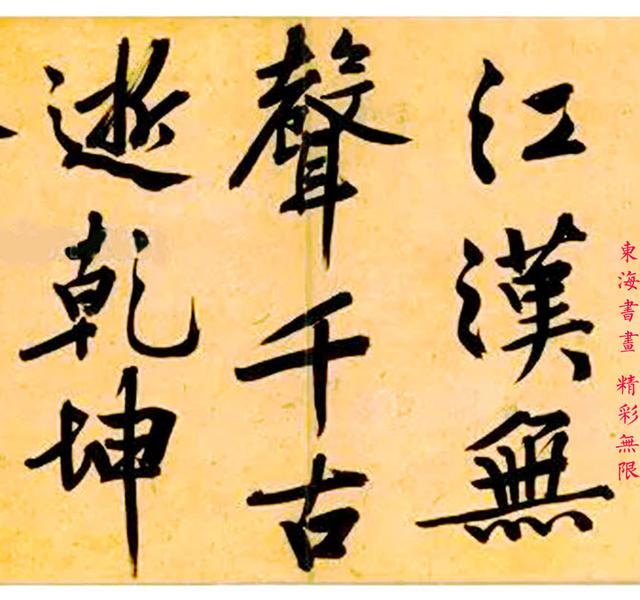 江漢無
聲千古
逝乾坤
東海書畫 精彩無限